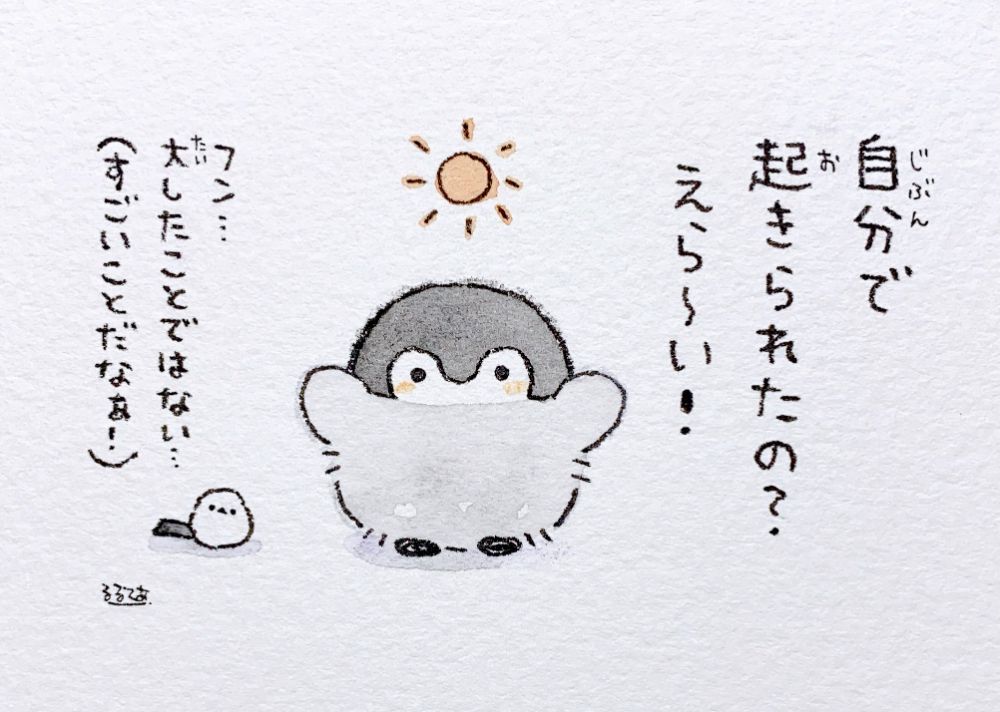 自分で
起きられたの?
えら〜い!
フン…
大したことではない…
(すごいことだなぁ!)
じぶん
お
たい
るるてあ